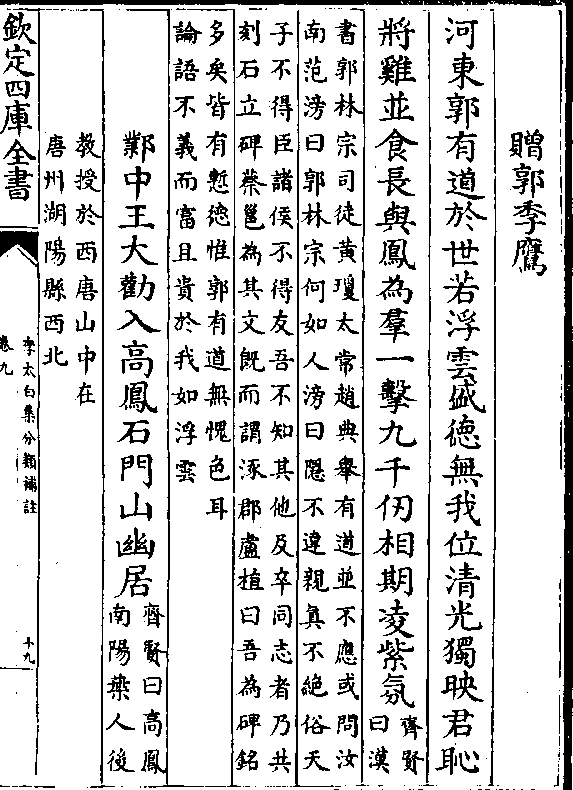 贈郭季鷹
河東郭有道於世若浮雲盛德無我位清光獨映君恥
將雞並食長與鳳為羣一擊九千仞相期凌紫氛
齊賢
曰漢
書郭林宗司徒黃瓊太常趙典舉有道並不應或問汝
南范滂曰郭林宗何如人滂曰隱不違親貞不絕俗天
子不得臣諸侯不得友吾不知其他及卒同志者乃共
刻石立碑蔡邕為其文既而謂涿郡盧植曰吾為碑銘
多矣皆有慙德惟郭有道無愧色耳
論語不義而富且貴於我如浮雲
鄴中王大勸入高鳳石門山幽居
齊賢曰高鳳
南陽葉人後
教授於西唐山中在
唐州湖陽縣西北
欽定四庫全書
李太白集分類補註
卷九
十九